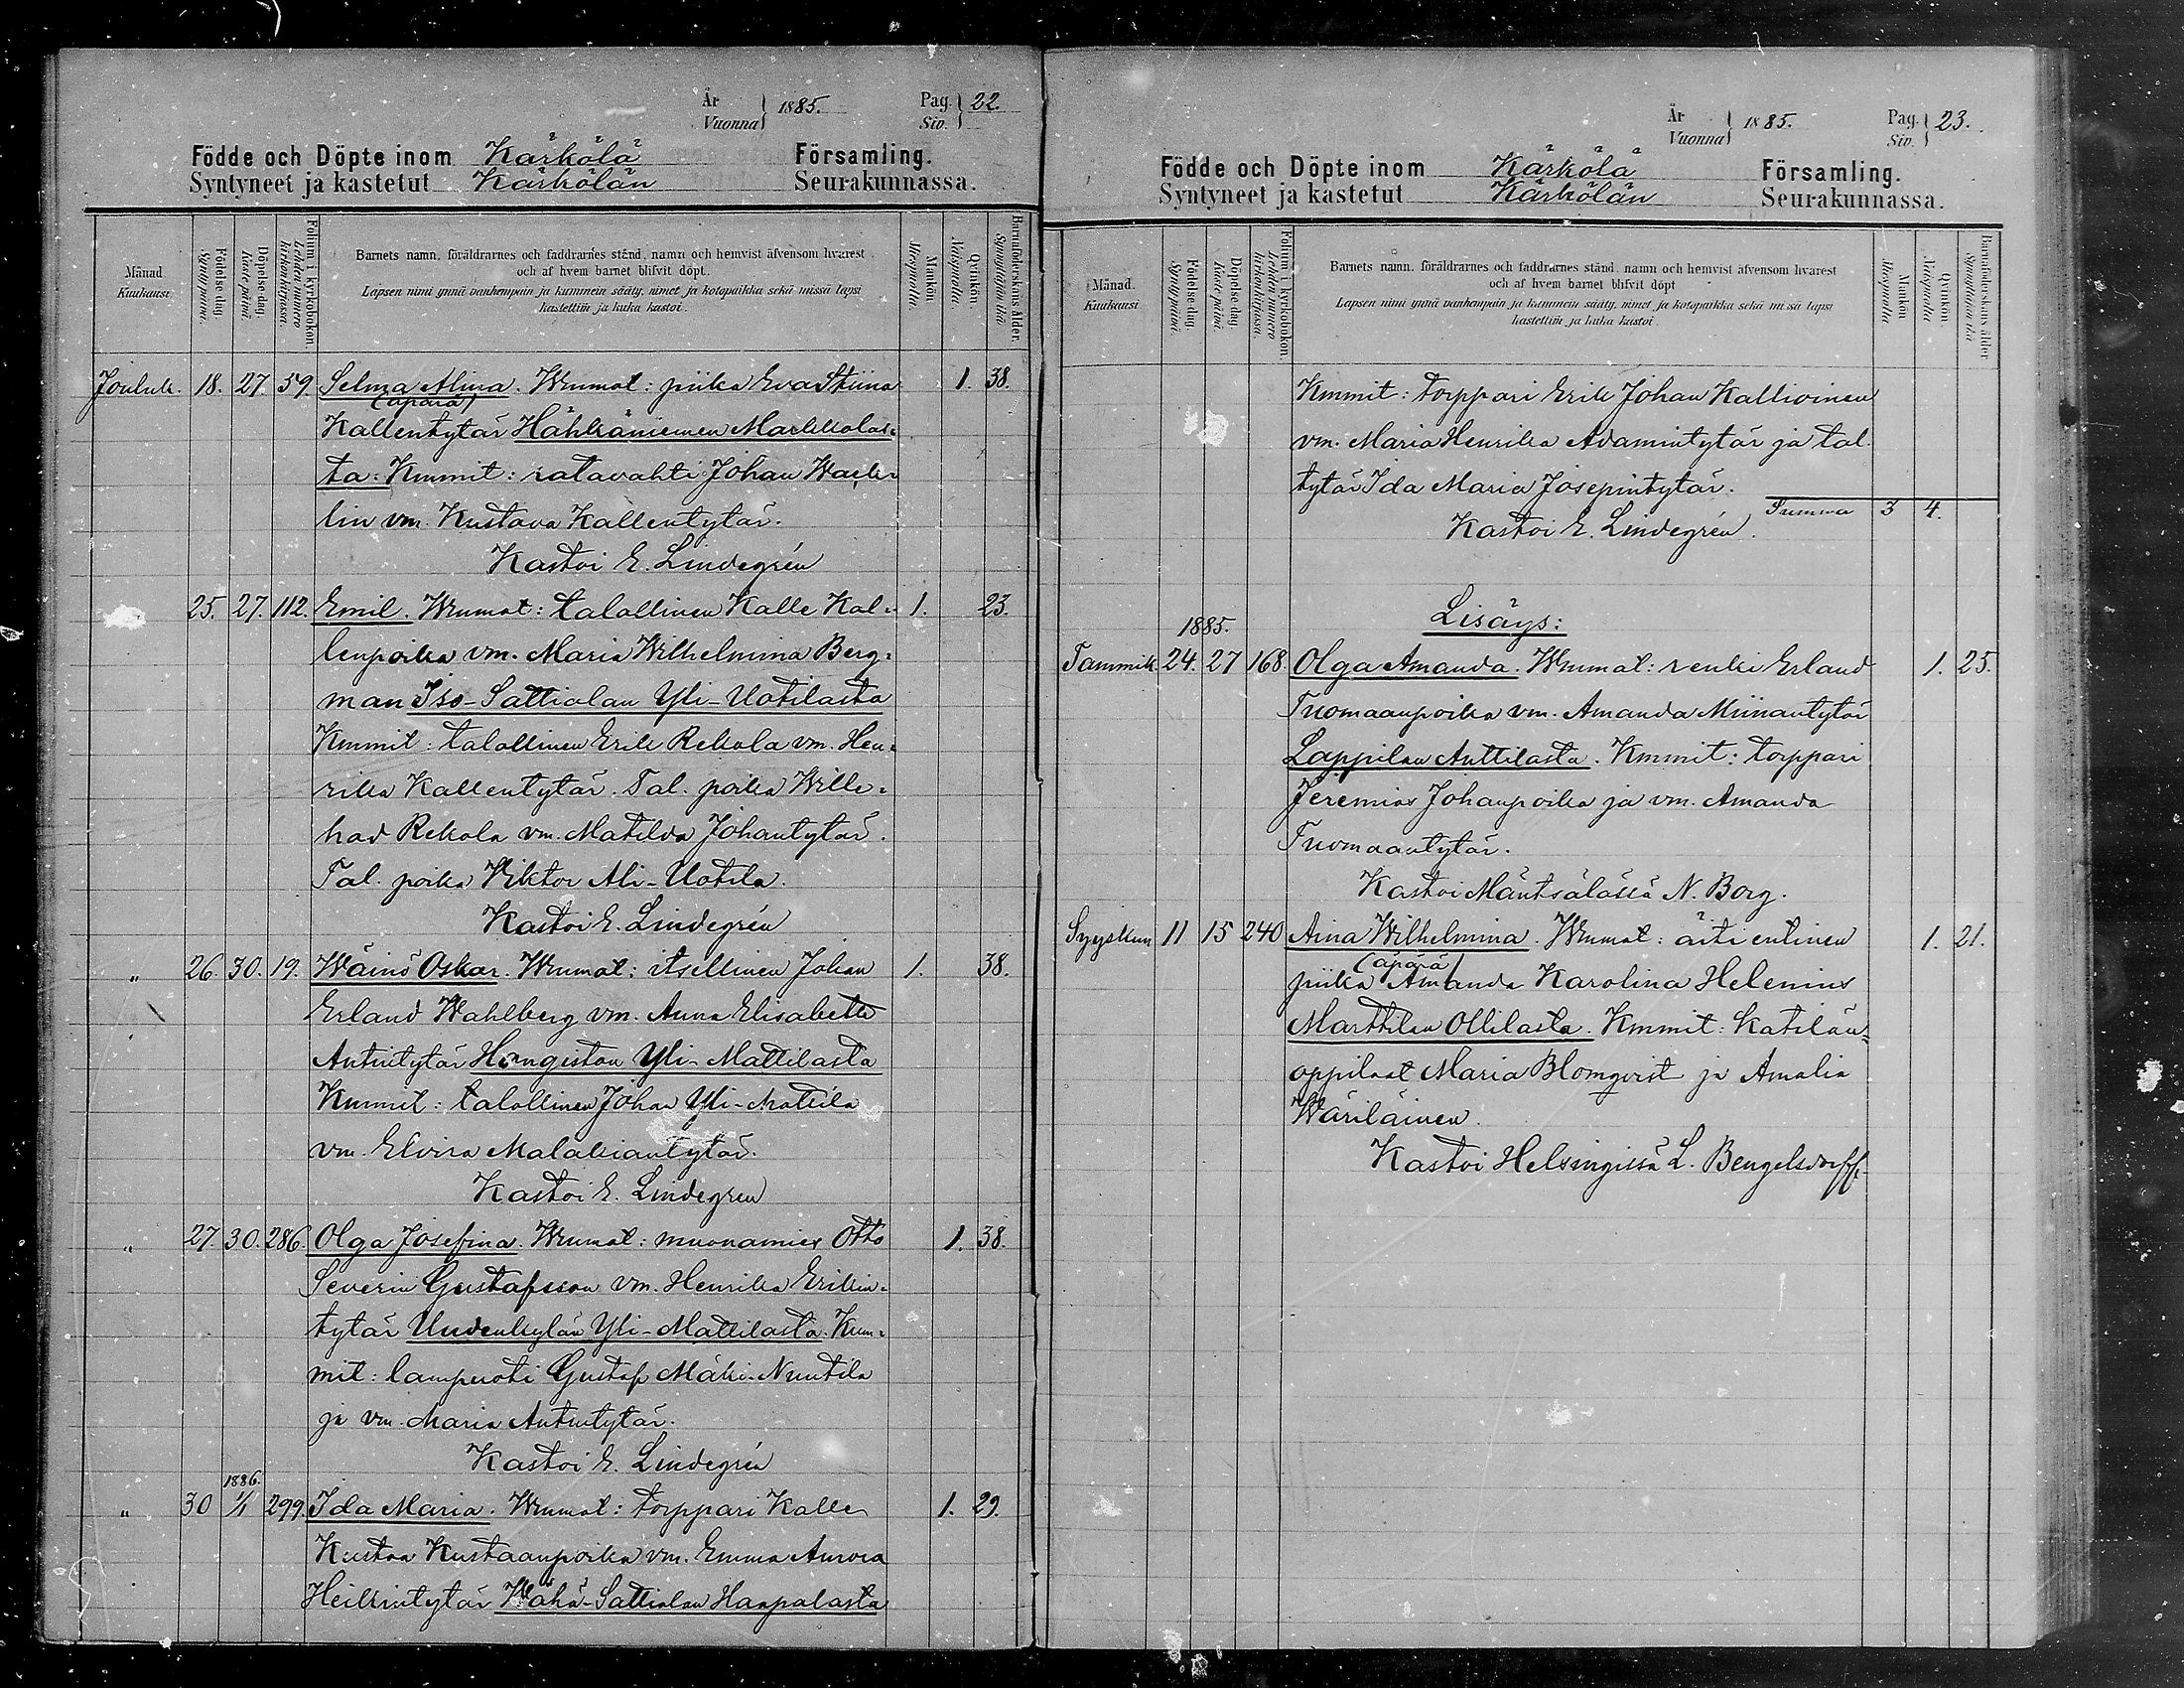 År
Vuonna } 1885. Pag. Siv. } 22.
Födde och Döpte inom Kärkölä Församling.
Syntyneet ja kastetut Kärkölän Seurakunnassa.
Månad Kuukausi
Födelse-dag. Syntypäivä.
Döpelse-dag. Kaste-päivä
Folium i kyrkoboken. Lehden numero kirkonkirjassa.
Barnets namn, föräldrarnes och faddrarnes stånd, namn och hemvist äfvensom hvarest
och af hvem barnet blifvit döpt.
Lapsen nimi ynnä vanhempain ja kummein sääty, nimet ja kotopaikka sekä missä lapsi
kastettiin ja kuka kastoi.
Mankön Miespuolia.
Qvinkön. Naispuolia.
Barnaföderskans ålder. Synnyttäjän ikä.
Jouluk. 18. 27. 59. Selma Alina. Wmmat: piika Eva Stiina 1. 38.
(äpärä)
Kallentytär Hähkäniemen Markkolas-
ta: Kmmit: ratavahti Johan Wack-
lin vm. Kustava Kallentytär.
Kastoi E. Lindegrén
25. 27. 112. Emil. Wmmat: talollinen Kalle Kal- 1. 23.
lenpoika vm. Maria Wilhelmina Berg-
man Iso-Sattialan Yli-Uotilasta
Kmmit: talollinen Erik Rekola vm. Hen-
rika Kallentytär. Tal. poika Wille-
had Rekola vm. Matilda Johantytär.
Tal. poika Wiktor Ali-Uotila.
Kastoi E. Lindegrén
„ 26. 30. 19. Wäinö Oskar. Wmmat: itsellinen Johan 1. 38.
Erland Wahlberg vm. Anna Elisabette
Antintytär Hongiston Yli-Mattilasta
Kmmit: talollinen Johan Yli-Mattila
vm. Elvira Malakiantytär.
Kastoi E. Lindegren
„ 27. 30. 286. Olga Josefina. Wmmat: muonamies Otto 1. 38.
Severin Gustafsson vm. Henrika Erikin-
tytär Uudenkylän Yli-Mattilasta. Kum-
mit: lampuoti Gustaf Mäki-Nuutila
ja vm. Maria Antintytär.
Kastoi E. Lindegrén
1886.
„ 30 1/1 299. Ida Maria. Wmmat: torppari Kalle 1. 29.
Kustaa Kustaanpoika vm. Emma Aurora
Heikintytär Wähä-Sattialan Haapalasta
År
Vuonna } 1885. Pag. Siv. } 23.
Födde och Döpte inom Kärkölä Församling.
Syntyneet ja kastetut Kärkölän Seurakunnassa.
Månad. Kuukausi
Födelse-dag. Syntypäivä.
Döpelse-dag. Kaste-päivä.
Folium i kyrkoboken. Lehden numero kirkonkirjassa.
Barnets namn, föräldrarnes och faddrarnes stånd, namn och hemvist äfvensom hvarest
och af hvem barnet blifvit döpt
Lapsen nimi ynnä vanhempain ja kummein sääty, nimet ja kotopaikka sekä missä lapsi
kastettiin ja kuka kastoi.
Mankön Miespuolia
Qvinkön Naispuolia
Barnaföderskans ålder Synnyttäjän ikä
Kmmit: torppari Erik Johan Kallioinen
vm. Maria Henrika Adamintytär ja tal.
tytär Ida Maria Josepintytär.
Summa 3 4.
Kastoi E. Lindegrén.
Lisäys:
1885.
Tammik. 24. 27 168. Olga Amanda. Wmmat: renki Erland 1. 25.
Tuomaanpoika vm. Amanda Miinantytär
Lappilan Anttilasta. Kmmit: torppari
Jeremias Johanpoika ja vm. Amanda
Tuomaantytär.
Kastoi Mäntsälässä N. Borg.
Syyskuu 11 15 240 Aina Wilhelmina. Wmmat: äiti entinen 1. 21.
(äpärä)
piika Amanda Karolina Helenius
Marttilan Ollilasta. Kmmit: Kätilän-
oppilaat Maria Blomqvist ja Amalia
Wäriläinen.
Kastoi Helsingissä L. Bengelsdorff.